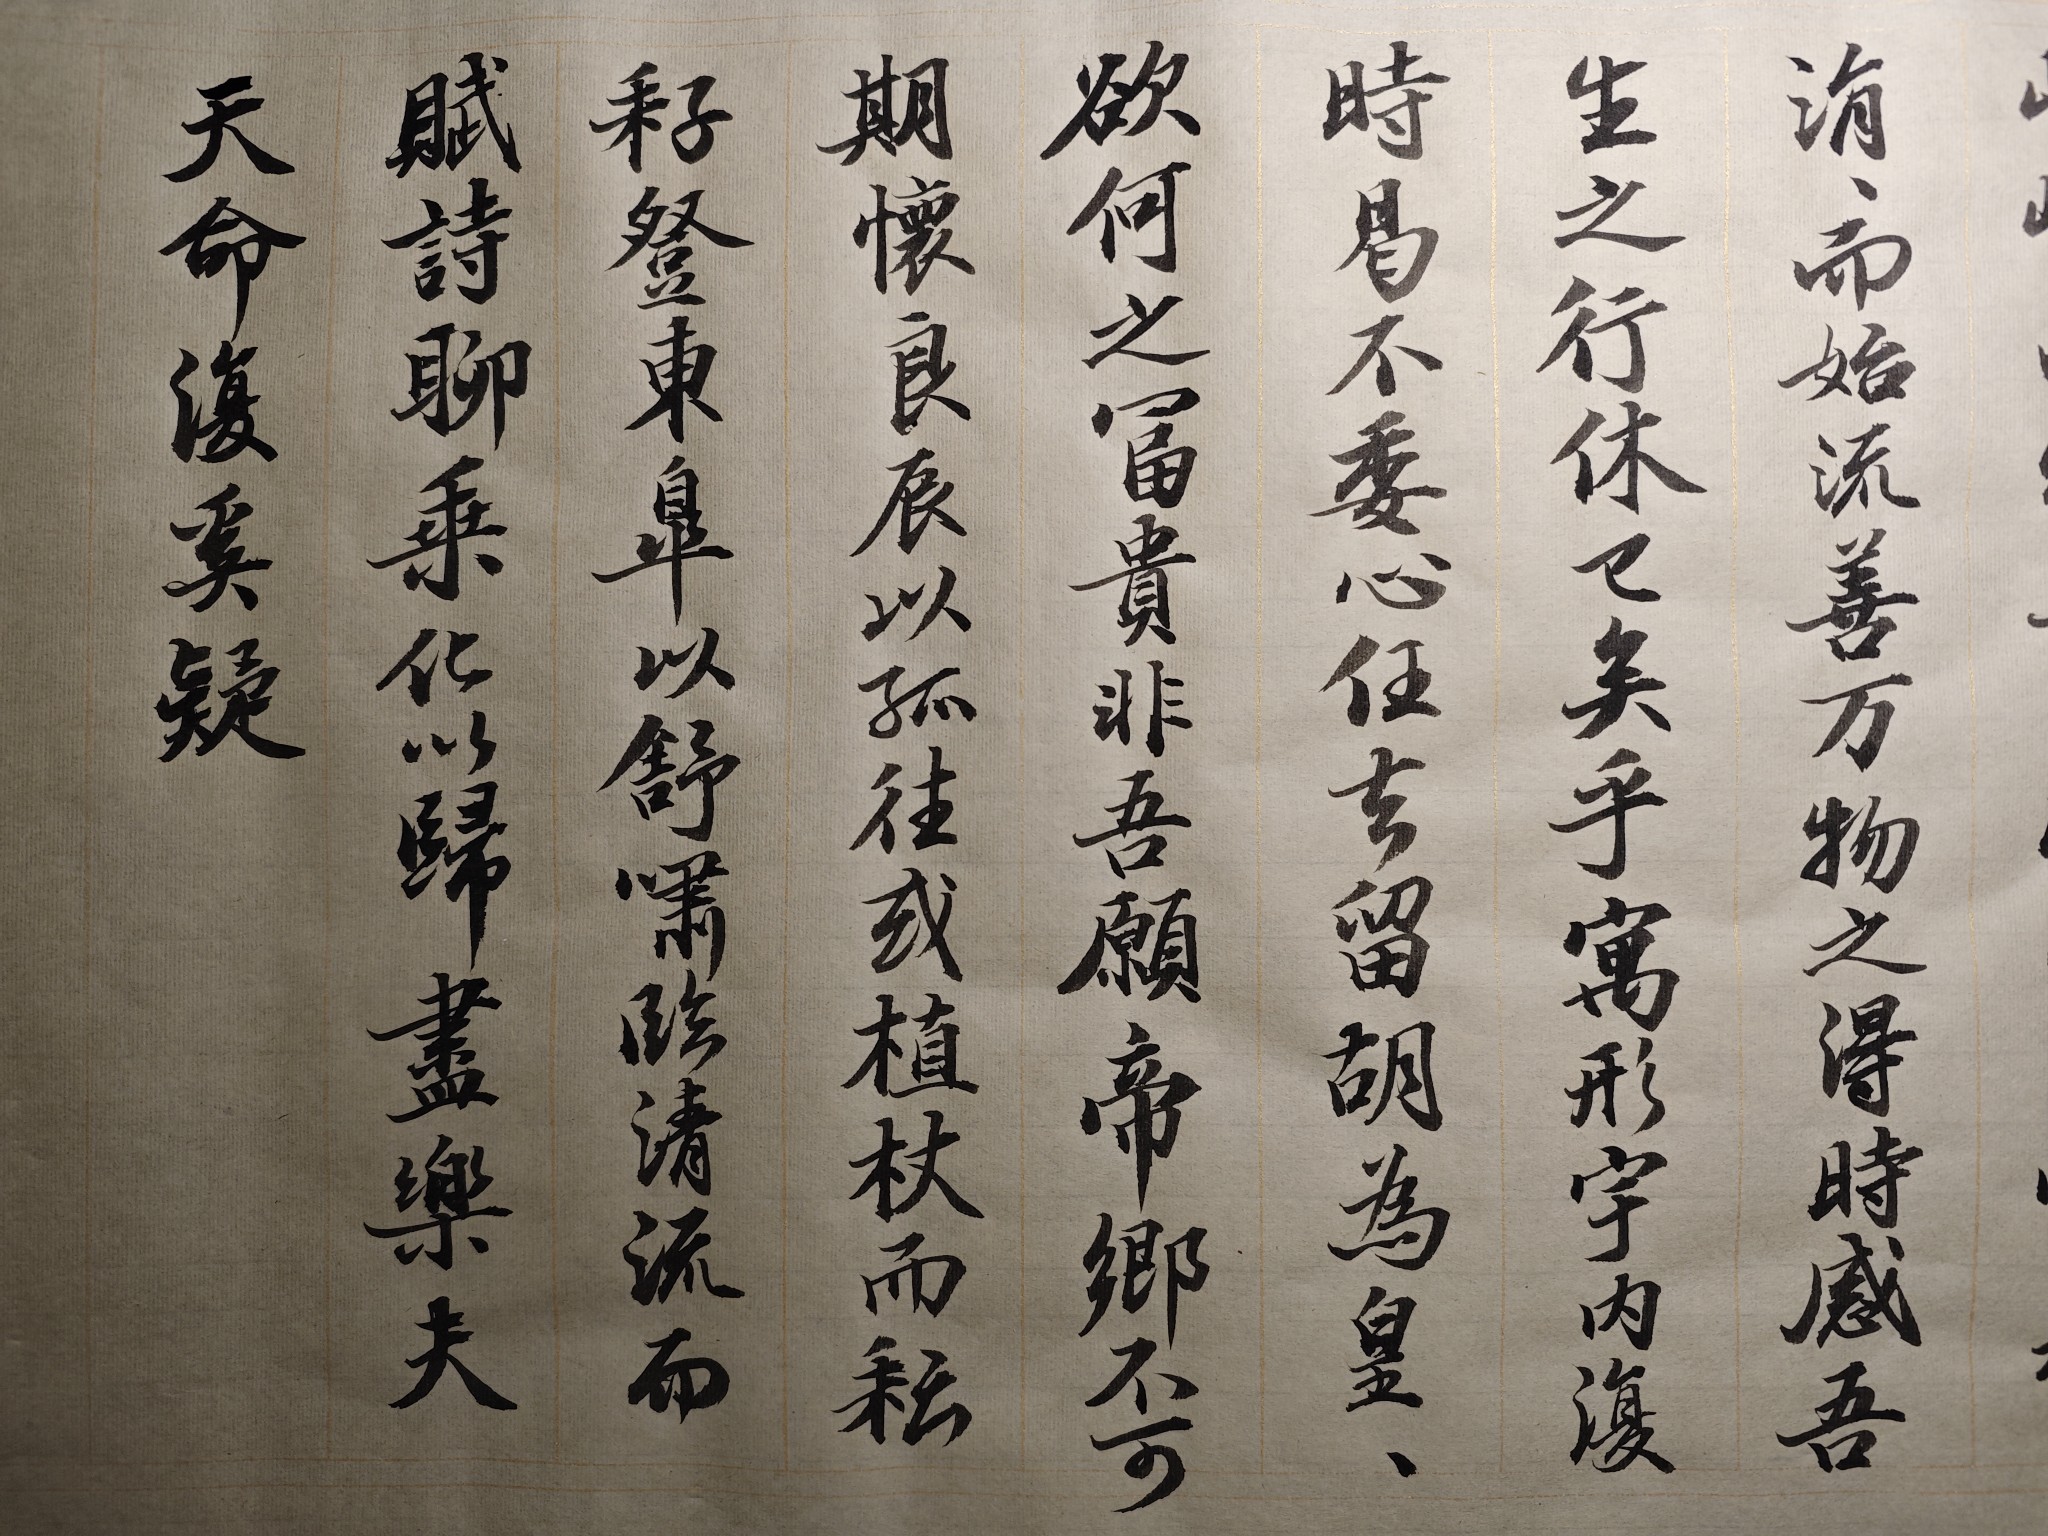 涓、而始流善万物之得時感吾
生之行休已矣乎寓形宇内復
時曷不委心任去留胡為皇、
欲何之冨貴非吾願帝鄉不可
期懷良辰以孤往或植杖而耘
耔登東臯以舒嘯臨清流而
賦詩聊乗化以歸盡樂夫
天命復奚疑